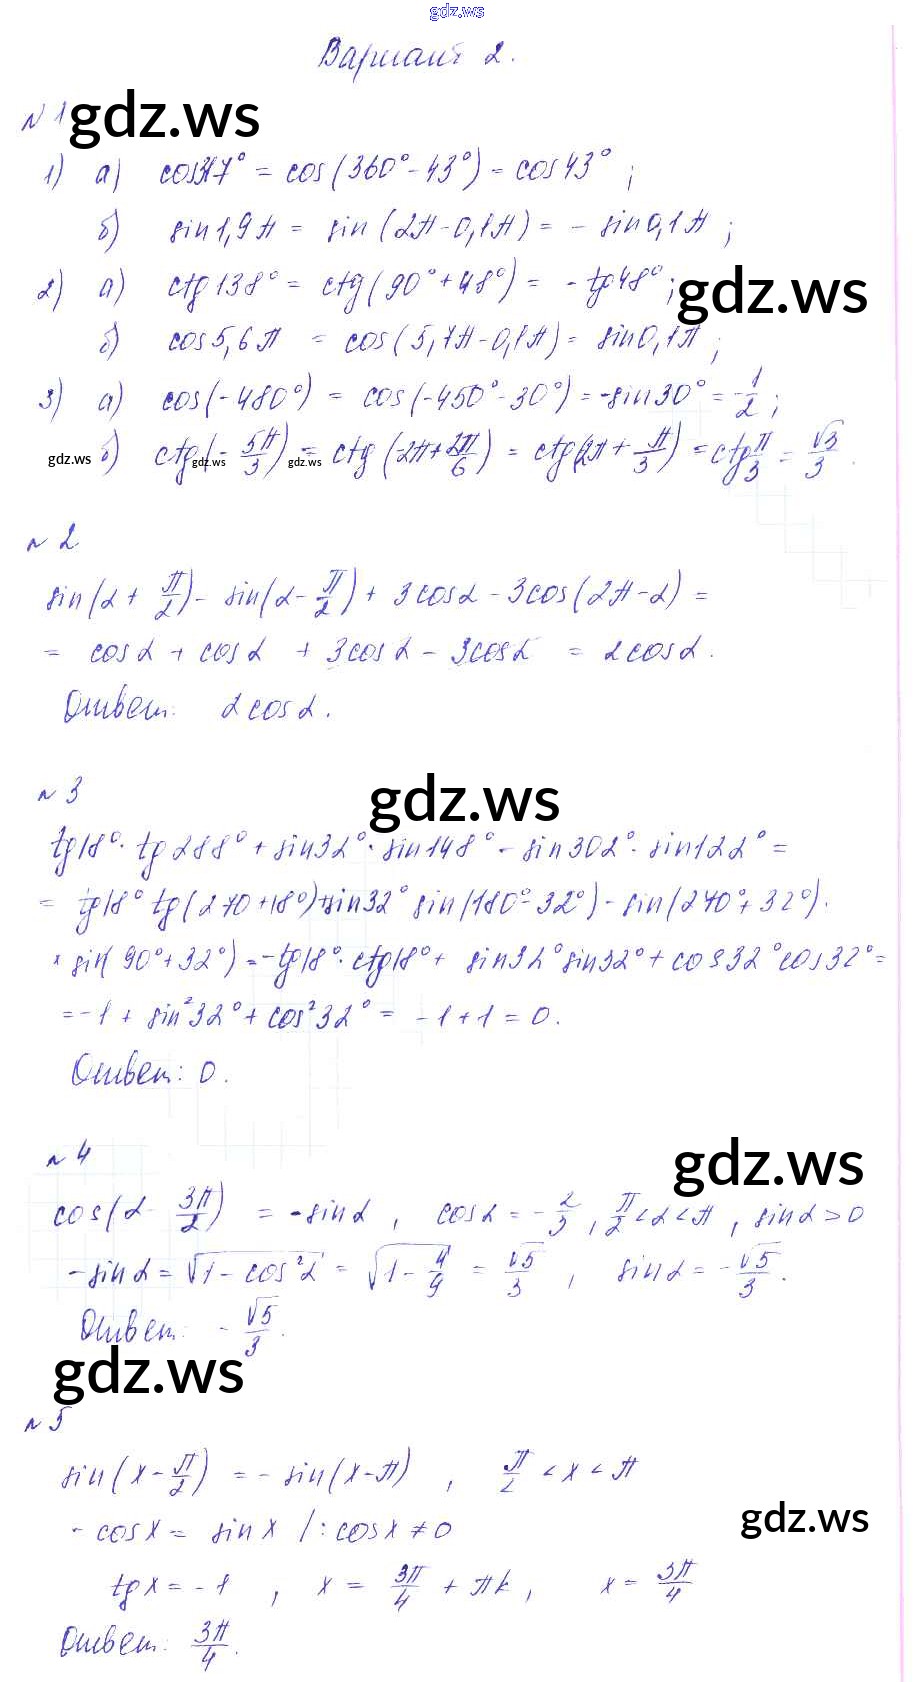 gdz.ws
Вариант 2.
№ 1 gdz.ws
1) а) cos317° = cos(360° - 43°) = cos43° ;
б) sin1,9π = sin(2π - 0,1π) = - sin0,1π ;
2) а) ctg138° = ctg(90° + 48°) = - tg48° ; gdz.ws
б) cos5,6π = cos(5,7π - 0,1π) = sin0,1π ;
3) а) cos(-480°) = cos(-450° - 30°) = -sin30° = -1/2 ;
gdz.ws б) ctg(-5π/3) gdz.ws = gdz.ws ctg(-2π + 2π/6) = ctg(2π + π/3) = ctg π/3 = √3/3 .
№ 2
sin(α + π/2) - sin(α - π/2) + 3cosα - 3cos(2π - α) =
= cosα + cosα + 3cosα - 3cosα = 2cosα .
Ответ: 2cosα .
№ 3 gdz.ws
tg18° · tg288° + sin32° · sin148° - sin302° · sin122° =
= tg18° tg(270 + 18°) + sin32° sin(180° - 32°) - sin(270° + 32°) ·
× sin(90° + 32°) = - tg18° · ctg18° + sin32° sin32° + cos32° cos32° =
= -1 + sin²32° + cos²32° = -1 + 1 = 0 .
Ответ: 0 .
№ 4 gdz.ws
cos(α - 3π/2) = - sinα , cosα = - 2/3 , π/2 < α < π , sinα > 0
- sinα = √(1 - cos²α) = √(1 - 4/9) = √5/3 , sinα = - √5/3 .
Ответ: - √5/3 .
gdz.ws
№ 5
sin(x - π/2) = - sin(x - π) , π/2 < x < π
- cosx = sinx /: cosx ≠ 0 gdz.ws
tgx = - 1 , x = 3π/4 + πk , x = 3π/4
Ответ: 3π/4 .